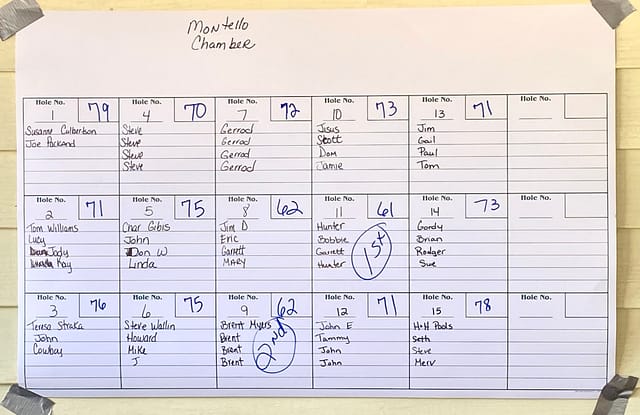 Montello
Chamber
Hole No. 1 79
Susanne Culbertson
Joe Packard
Hole No. 4 70
Steve
Steve
Steve
Steve
Hole No. 7 72
Gerrod
Gerrod
Gerrod
Gerrod
Hole No. 10 73
Jisus
Scott
Dom
Jamie
Hole No. 13 71
Jim
Gail
Paul
Tom
Hole No.
Hole No. 2 71
Tom Williams
Lucy
Jody
Kay
Hole No. 5 75
Char Gibis
John
Don W
Linda
Hole No. 8 62
Jim D
Eric
Garrett
Mary
Hole No. 11 61
Hunter
Bobbie
Garrett
Hunter
1st
Hole No. 14 73
Gordy
Brian
Rodger
Sue
Hole No.
Hole No. 3 76
Teresa Straka
John
Cowboy
Hole No. 6 75
Steve Wallin
Howard
Mike
J
Hole No. 9 62
Brent Myers
Brent
Brent
Brent
2nd
Hole No. 12 71
John E
Tammy
John
John
Hole No. 15 78
H+H Pools
Seth
Steve
Merv
Hole No.